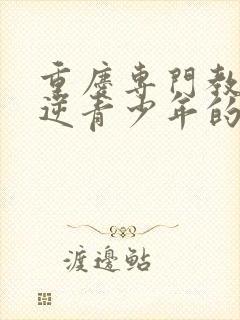 重慶專門教
逆青少年的
渡邊鮎